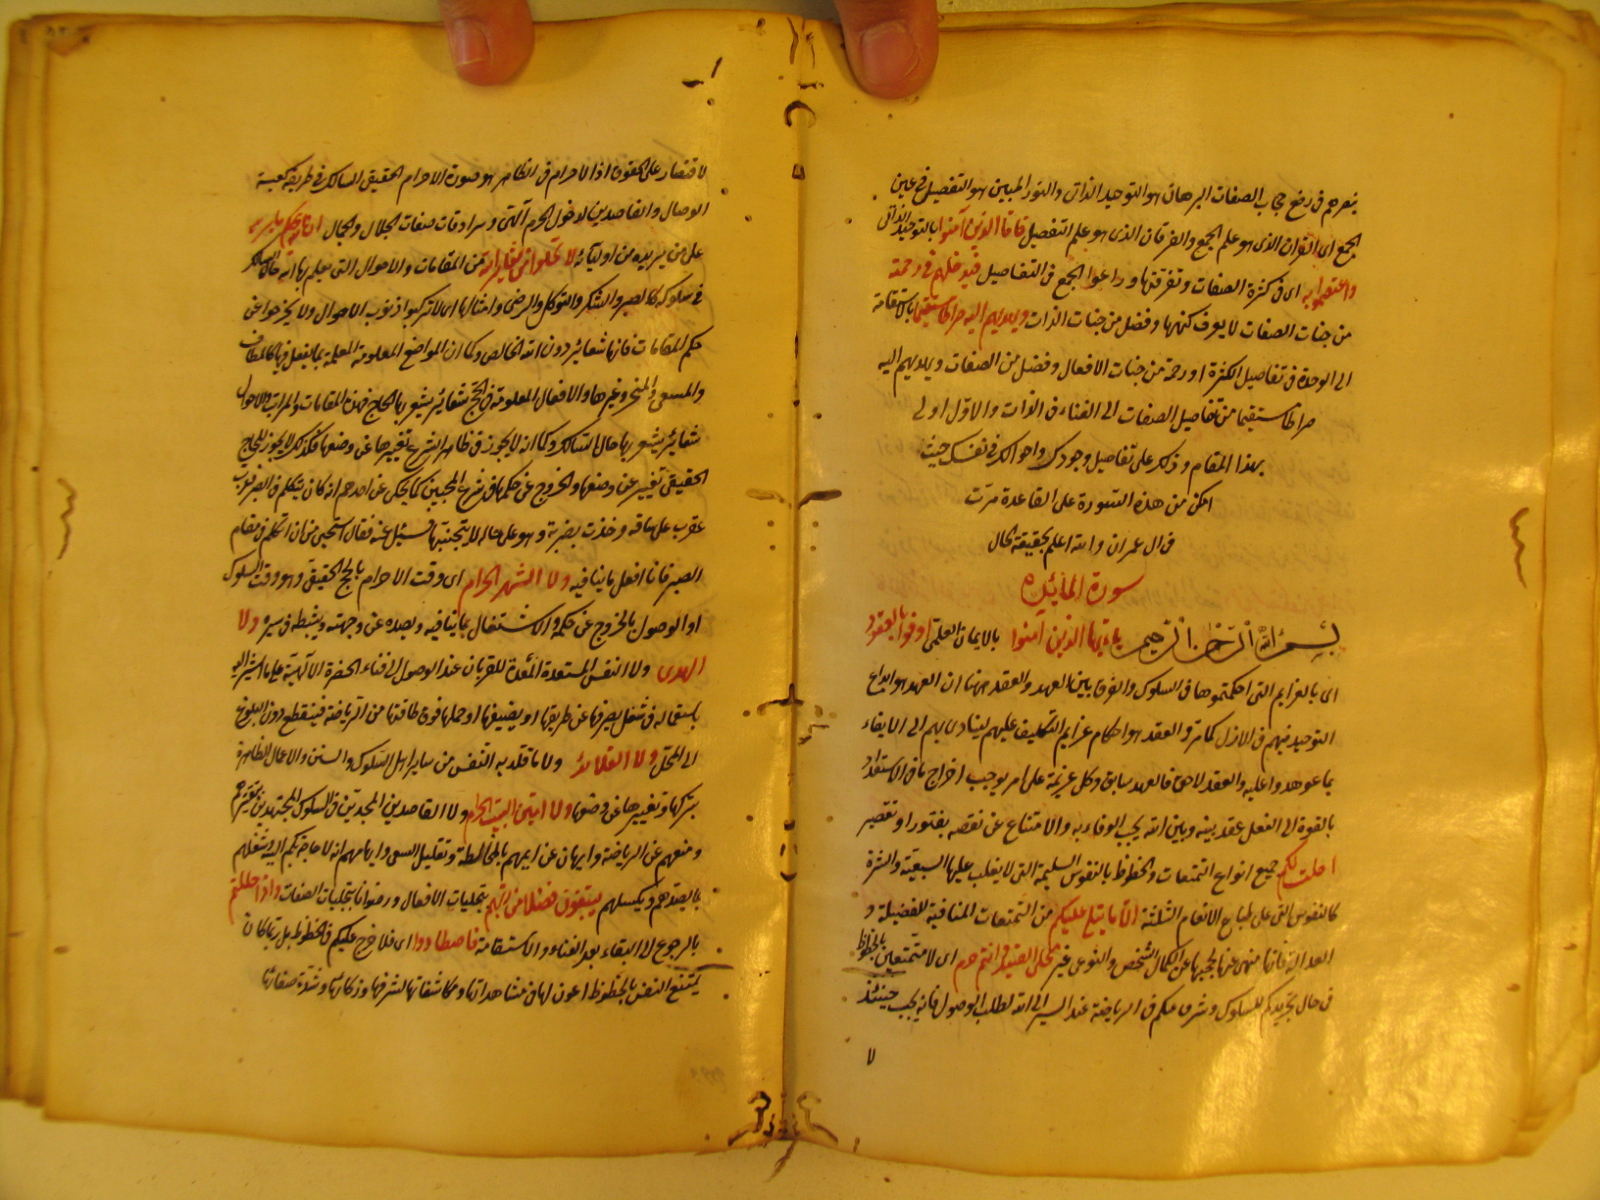 ينفرجهم في رفع حجاب الصفات البرهان هو التوحيد الذاتي والنور المبين هو التفصيل في عين
الجمع اى القرآن الذى هو علم الجمع والفرقان الذى هو علم التفصيل فاما الذين آمنوا بالتوحيد الذاتى
واعتصموا به اى فى كثرة الصفات وتفرقتها وراعوا الجمع فى التفاصيل فسيدخلهم فى رحمة
من جنات الصفات لا يعرف كنهها وفضل من جنات الذات ويهديهم اليه صراطا مستقيما بالاستقامة
الى الوحدة فى تفاصيل الكثرة او رحمة من جنات الافعال وفضل من الصفات ويهديهم اليه
صراطا مستقيما من تفاصيل الصفات الى الفناء فى الذات والاوّل اولى
بهذا المقام وذكر على تفاصيل وجودك واحوالك فى نفسك حيث
امكن من هذه السورة على القاعدة مرّت
فى ال عمران والله اعلم بحقيقة الحال
سورة المائدة
بسم الله الرحمن الرحيم يا ايها الذين امنوا بالايمان العلمى اوفوا بالعقود
اى بالعزايم التى احكمتموها فى السلوك والفرق بين العهد والعقد ههنا ان العهد هو ايداع
التوحيد فيهم فى الازل كما مرّ والعقد هو احكام عزايم التكليف عليهم ليتادى بهم الى الايفاء
بما عوهدوا عليه والعقد لاحق فالعهد سابق وكل عزيمة على امر يوجب اخراج ما فى الاستعداد
بالقوة الى الفعل عقد بينه وبين الله يجب الوفاء به والامتناع عن نقصه بفتور او تقصير
احلت لكم جميع انواع التمتعات والحظوظ بالنفوس السليمة التى لا يغلب عليها السبعية والشرة
كالنفوس التى على طباع الانعام الثلثة الا ما يتلى عليكم من التمتعات المنافية للفضيلة و
العدالة فانها منهى عنها لحجبها عن الكمال الشخصى والنوعى غير محلى الصيد وانتم حرم اى لا متمتعين بالحظوظ
فى حال تجريدكم للسلوك وشروعكم فى الرياضة عند السير الى الله لطلب الوصول فانه يجب حينئذ
لا
لاقتصار على الحقوق اذ الاحرام فى الظاهر هو صورة الاحرام الحقيقى للسالك فى طريق كعبة
الوصال والقاصدين لدخول الحرم الالهى وسرادقات صفات الجلال والجمال ان الله يحكم ما يريد
على من يريده من اوليائه لا تحلوا شعاير الله من المقامات والاحوال التى يعلم بها اية حال السالك
فى سلوكه كالصبر والشكر والتوكل والرضى وامثالها اى لا تركبوا ذنوب الاحوال ولا يخرجوا عن
حكم المقامات فانها شعاير دون الله الخالص وكما ان المواضع المعلومة المعلمة بما يفعل فيها كالمطاف
والمسعى والمنحر وغيرها والافعال المعلومة فى الحج شعائر يشعر بها الحاج فهذه المقامات والمراتب والاحوال
شعائر يشعر بها حال السالك وكما ان لا يجوز فى ظاهر الشرع تغييرها عن وضعها فكذلك لا يجوز للحاج
الحقيقى تغييرها عن وضعها والخروج عن حكمها فى شرع المحبين كما يحكى عن احدهم انه كان يتكلم فى الصبر فدب
عقرب على ساقه واخذت بضربه وهو على حاله لا يتجنبها فسئل عنه فقال استحيى من ان اتكلم فى مقام
الصبر فانا افعل ما ينافيه ولا الشهر الحرام اى وقت الاحرام بالحج الحقيقى وهو وقت السلوك
او الوصول بالخروج عن حكمه والاشتغال بما ينافيه ويصده عن وجهته ويثبطه فى سيره ولا
الهدى ولا النفس المستعدة المعدة للقربان عند الوصول الى فناء الحضرة الالهية على ما اشير اليه
باستعماله فى شغل يصرفها عن طريقها او يضيفها او حملها فوق طاقتها من الرياضة فينقطع دون البلوغ
الى المحل ولا القلائد ولا ما قلّد به النفس من ساير اهل السلوك والسنن والاعمال الظاهرة
بتركها وتغييرها عن وضعها ولا امّين البيت الحرام ولا القاصدين المجدين فى السلوك المجتهدين
ومنعهم عن الرياضة وايهان عزايمهم بالمخالطة وتقليل السعى وايهامهم انه لا حاجة بكم اليه شغلهم
بما يصدهم ويكسلهم يبتغون فضلا من ربهم بتجليات الافعال ورضوانا بتجليات الصفات واذا حللتم
بالرجوع الى البقاء بعد الفناء والاستقامة فاصطادوا اى فلا حرج عليكم فى الحظوظ بل ربما كان
تمتع النفس بالحظوظ اعون لها فى مشاهداتها ومكاشفاتها لشرفها وذكائها وشدّة صفائها